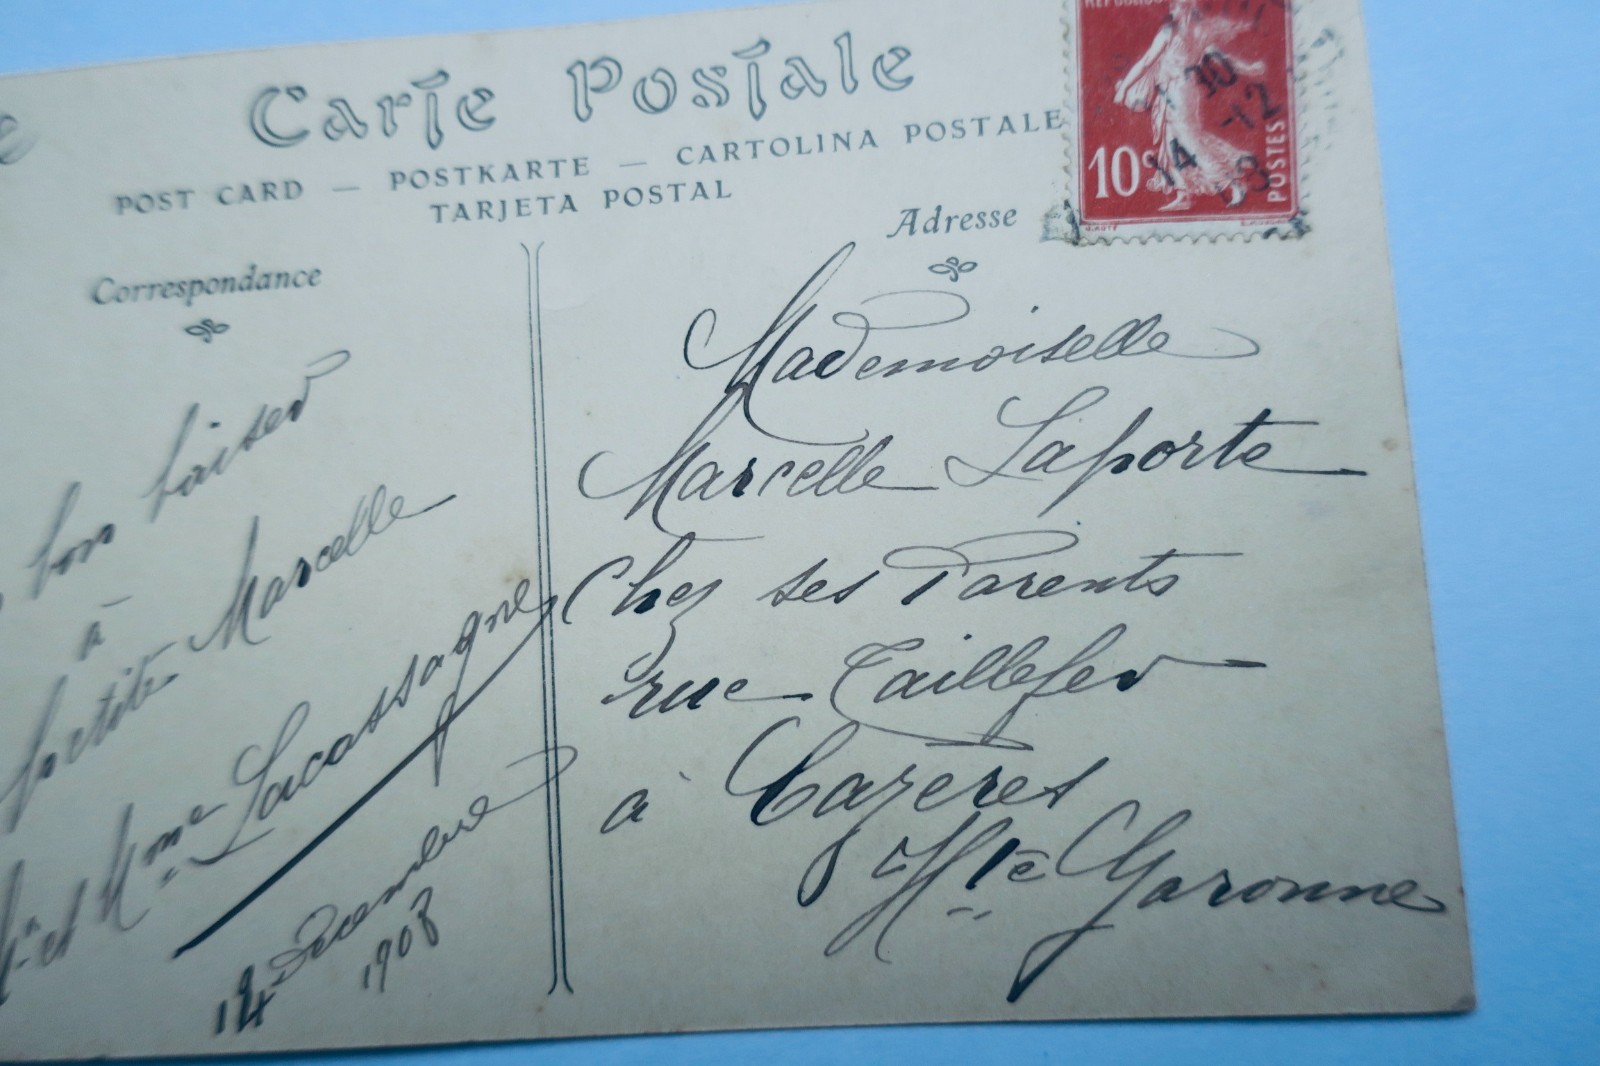 Carte Postale
POST CARD — POSTKARTE — CARTOLINA POSTALE
TARJETA POSTAL
Correspondance
bon baiser
à
petite Marcelle
et Mme Lacassagne
14 Décembre
1908
Adresse
Mademoiselle
Marcelle Laporte
Chez ses Parents
rue Taillefer
à Cazères
Hte Garonne
10c POSTES
14
-12